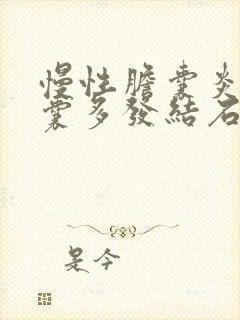 慢性膽囊炎
囊多發結石
是今